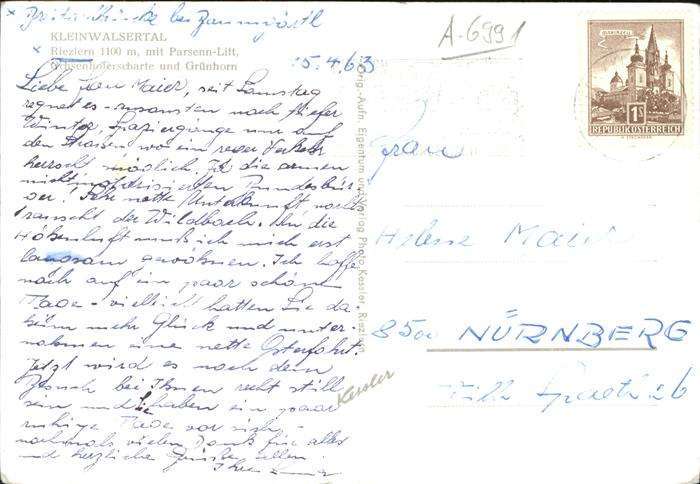 bei
KLEINWALSERTAL
x Riezlern 1100 m, mit Parsenn-Lift,
Ochsenhoferscharte und Grünhorn
15.4.63
A-6991
Liebe Frau Maier, seit Samstag
regnet es - ansonsten noch tiefer
Winter, Spaziergänge nur auf
den Strassen wo ein reger Verkehr
herrscht möglich. Ist die armen
nicht Bundesbür
ger! Sehr nette Unterkunft nachts
rauscht der Wildbach. An die
Höhenluft muß ich mich erst
langsam gewöhnen. Ich hoffe
noch auf ein paar schöne
Tage - vielleicht hatten Sie da
heim mehr Glück und unter-
nahmen eine nette Osterfahrt.
Jetzt wird es nach dem
Besuch bei Ihnen recht still
sein und Sie haben ein paar
ruhige Tage vor sich -
nochmals vielen Dank für alles
und herzliche Grüße allen
Ihre
Orig.-Aufn. Eigentum und Verlag Photo Kessler, Riezlern
Kessler
REPUBLIK ÖSTERREICH
1 S
Frau
Helene Maier
8500 NÜRNBERG